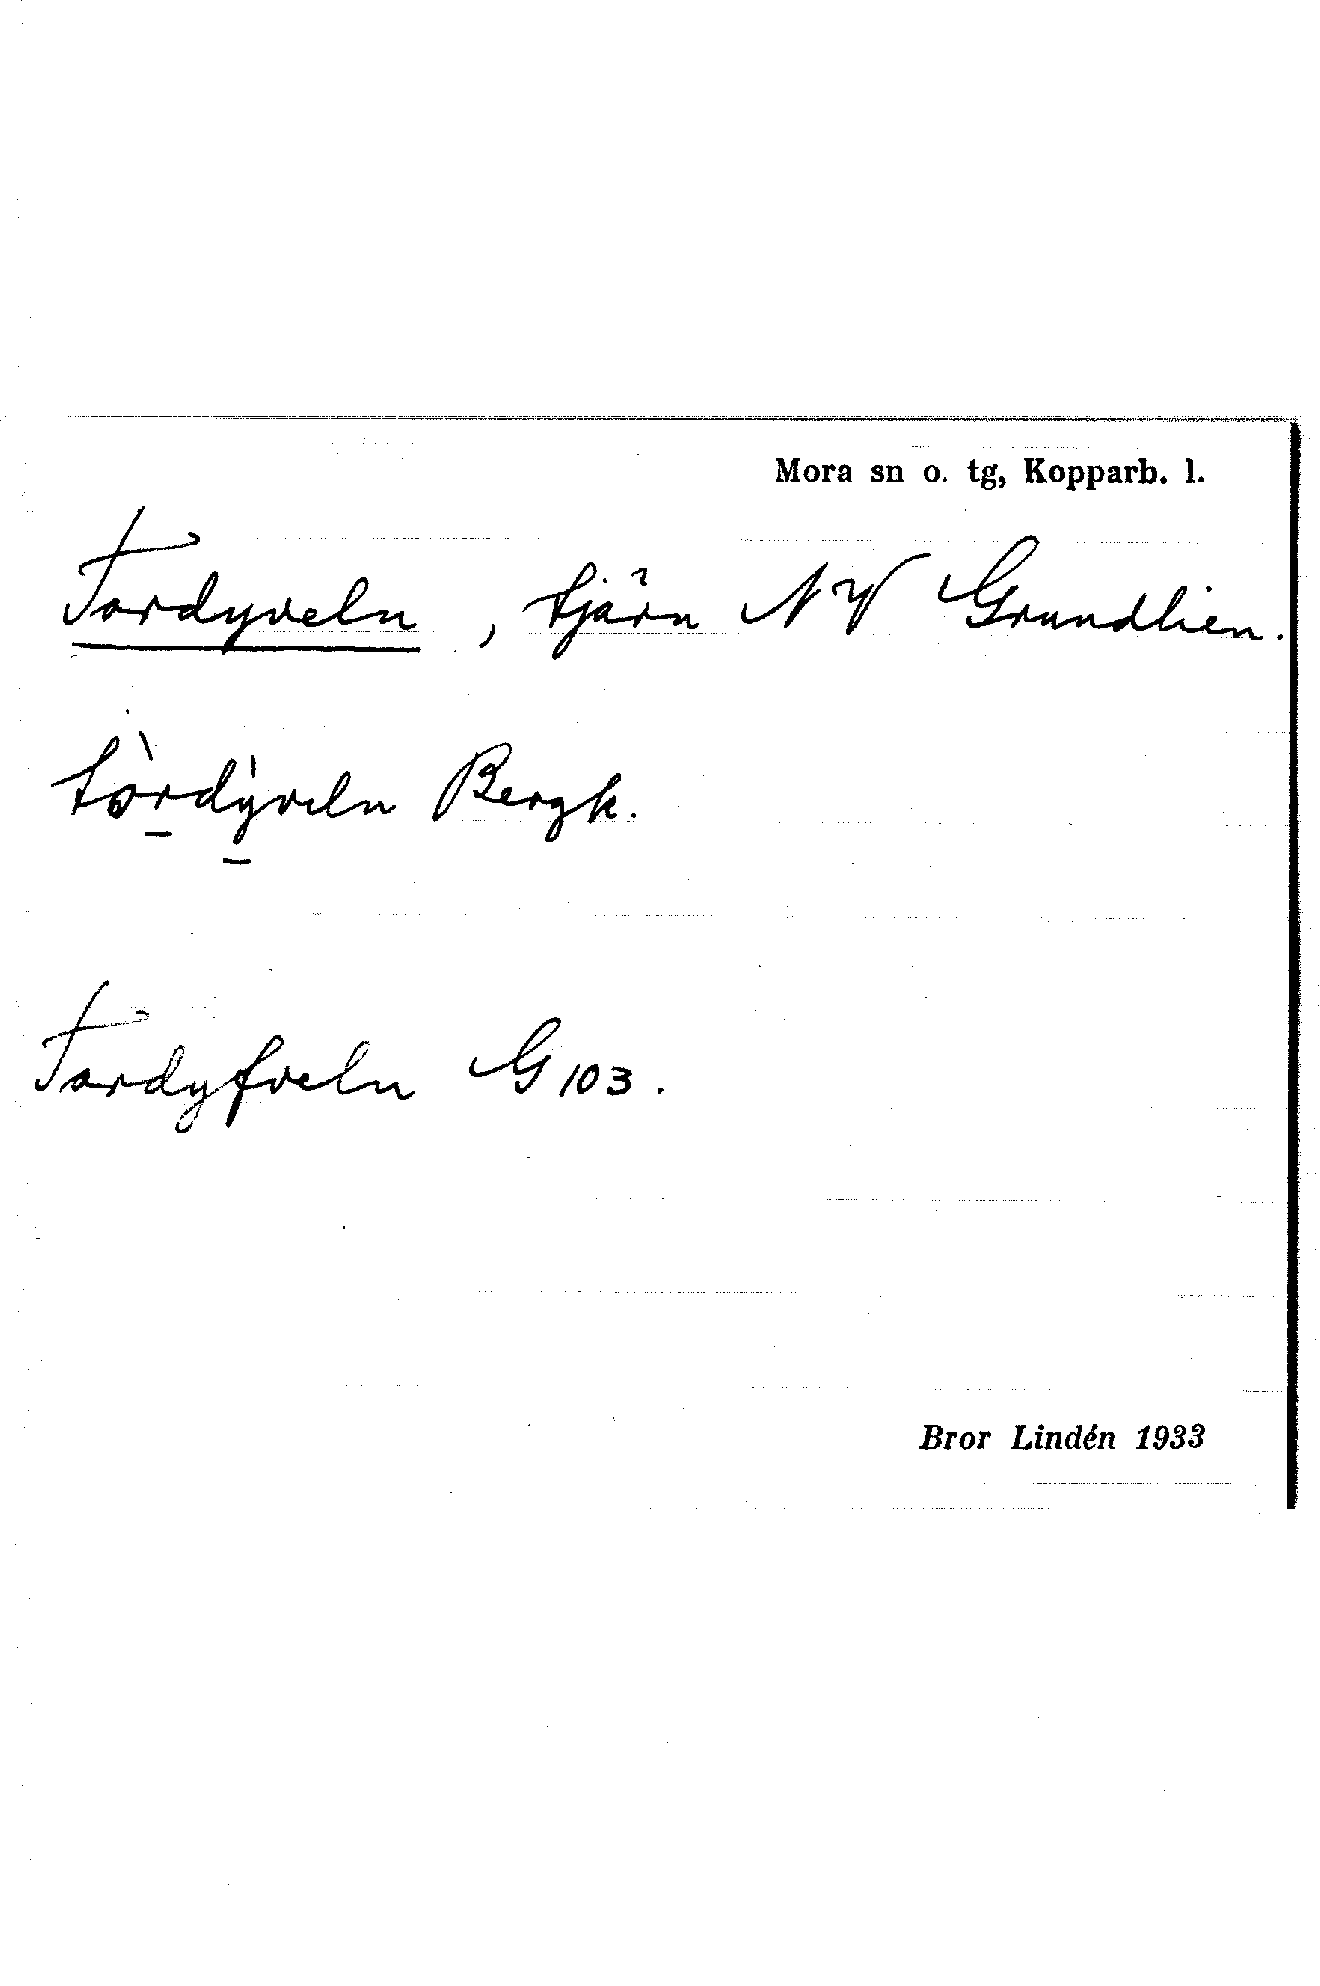 Mora sn o. tg, Kopparb. l.
Tordyveln, tjärn NV Grundlien.
tòrdỳveln Bergk.
Tordyfveln G 103.
Bror Lindén 1933